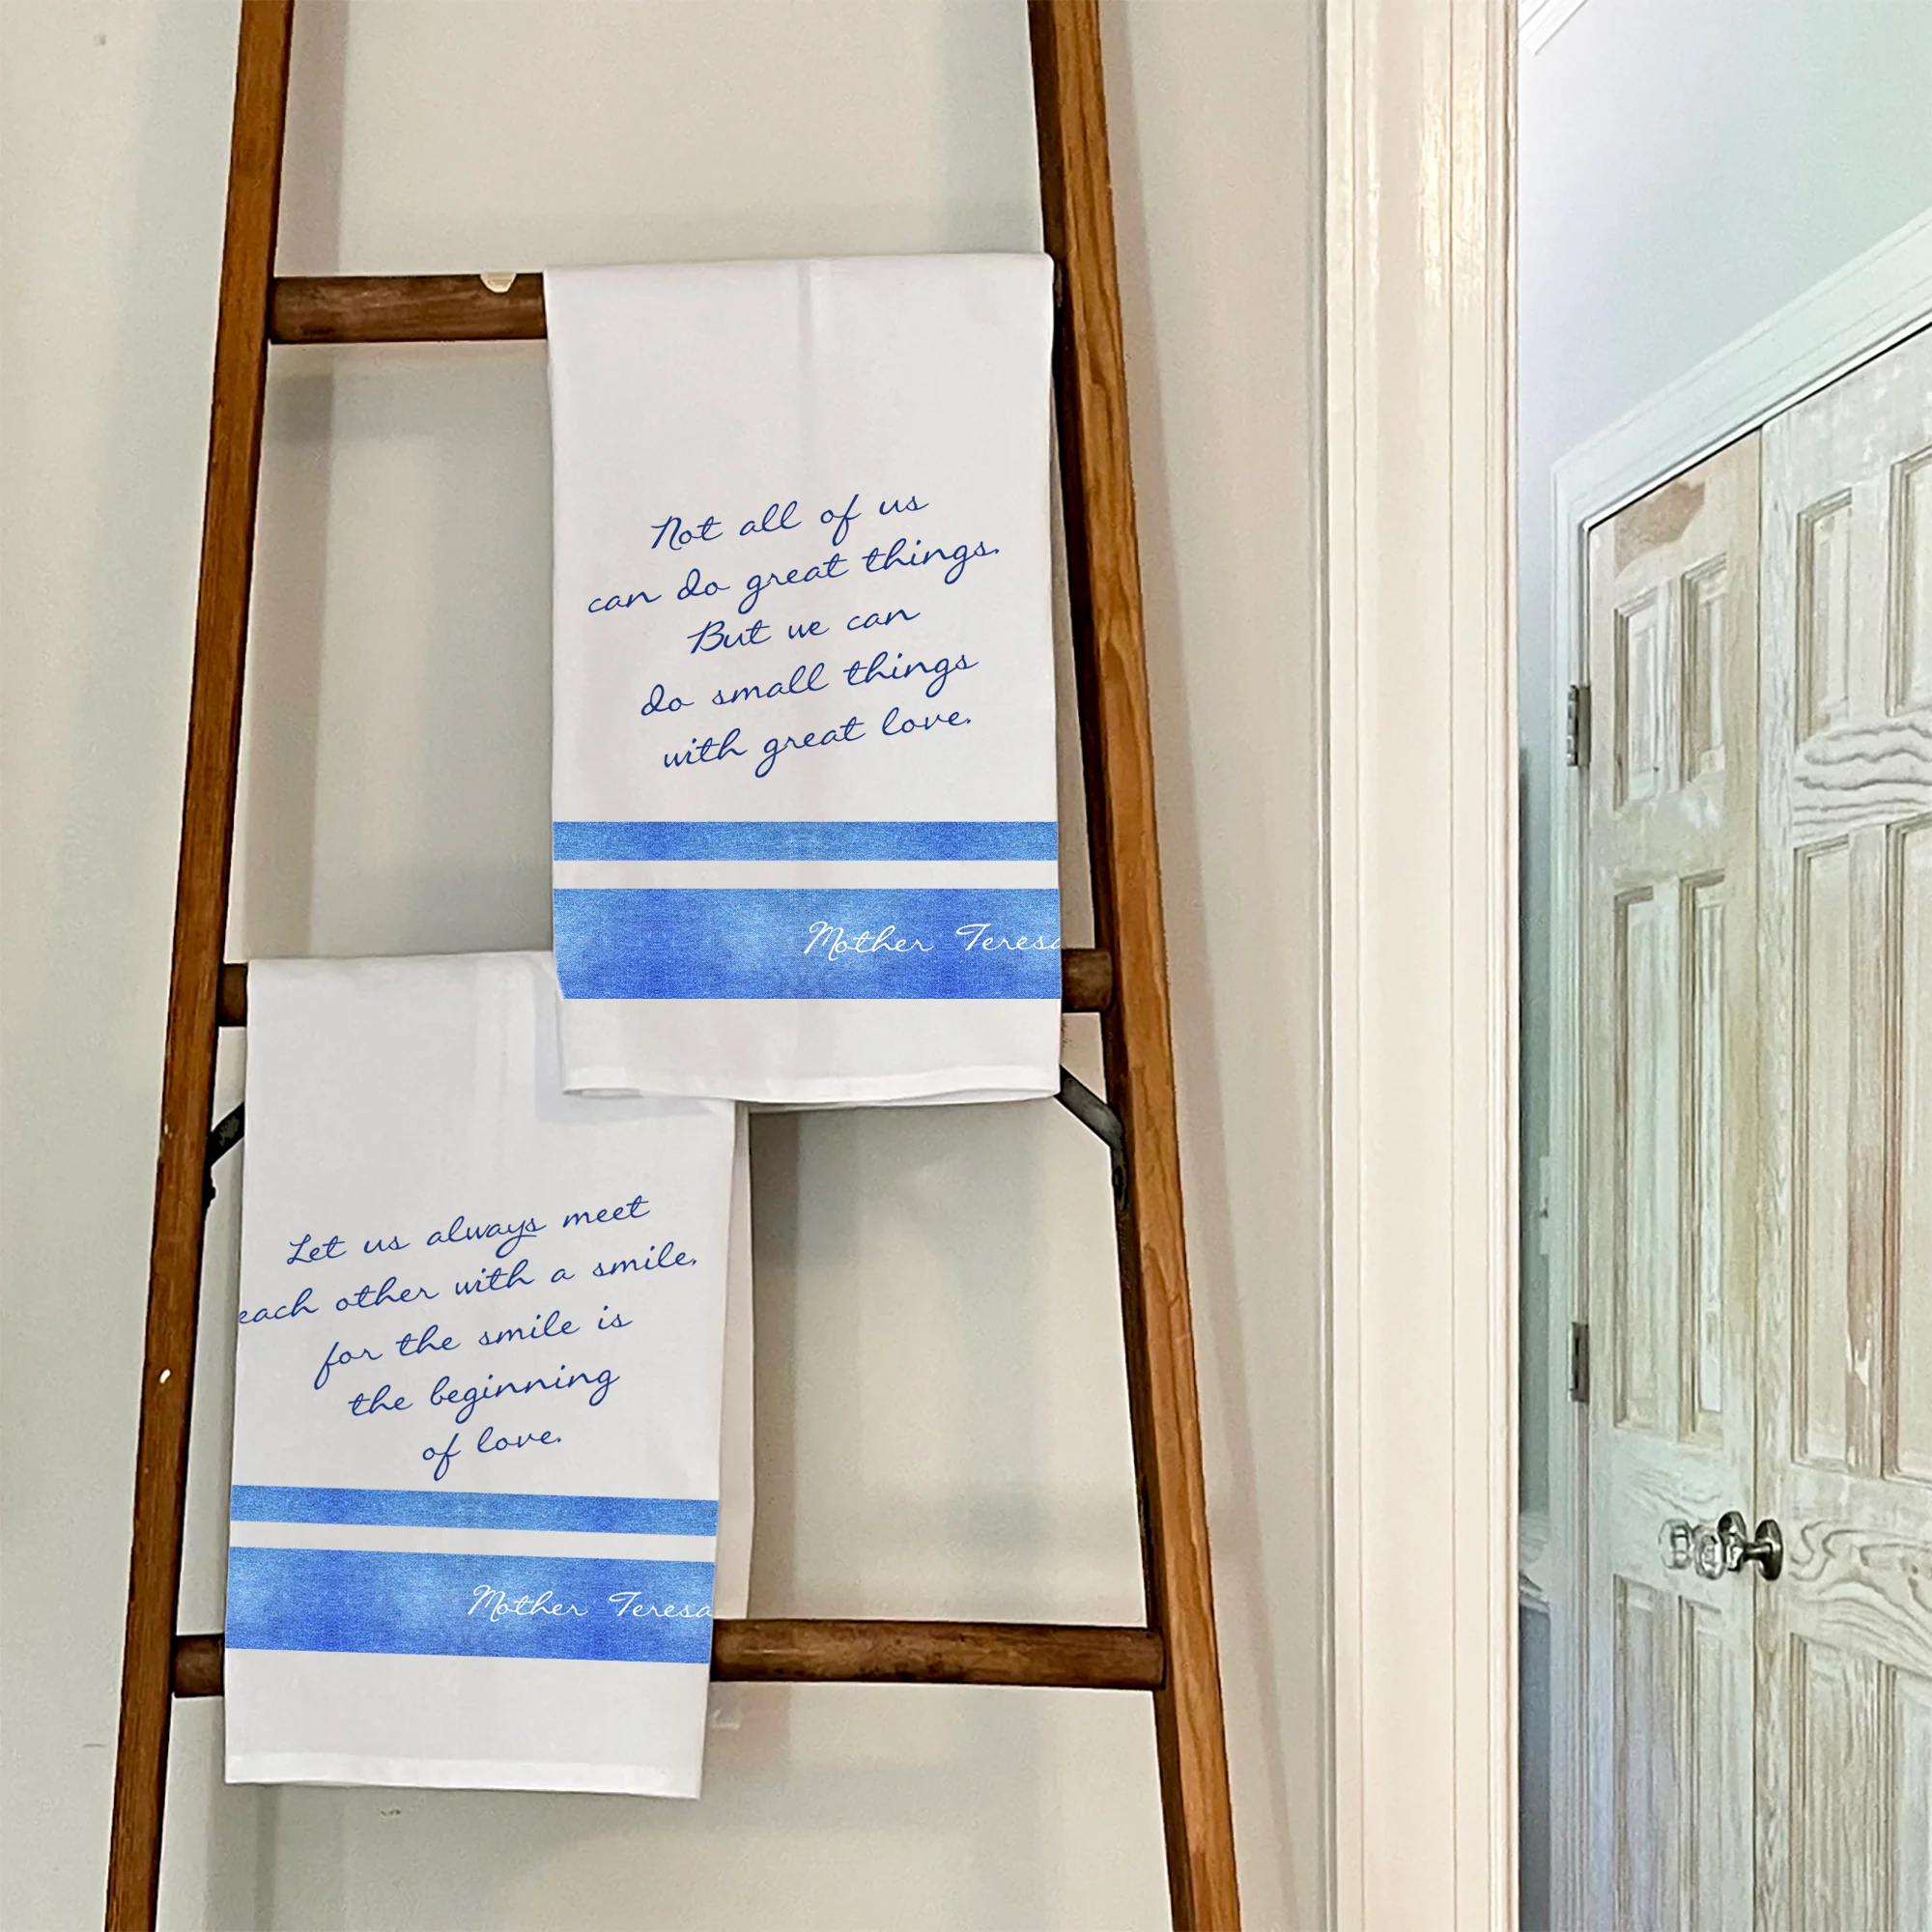 Not all of us
can do great things.
But we can
do small things
with great love.
Mother Teresa
Let us always meet
each other with a smile,
for the smile is
the beginning
of love.
Mother Teresa